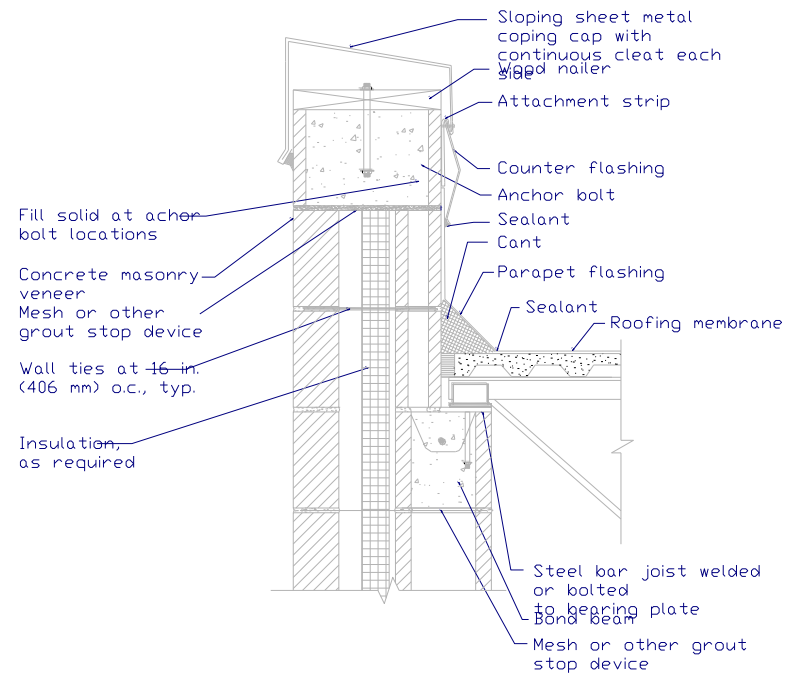 Sloping sheet metal
coping cap with
continuous cleat each
side
Wood nailer
Attachment strip
Counter flashing
Anchor bolt
Sealant
Cant
Parapet flashing
Sealant
Roofing membrane
Fill solid at achor
bolt locations
Concrete masonry
veneer
Mesh or other
grout stop device
Wall ties at 16 in.
(406 mm) o.c., typ.
Insulation,
as required
Steel bar joist welded
or bolted
to bearing plate
Bond beam
Mesh or other grout
stop device